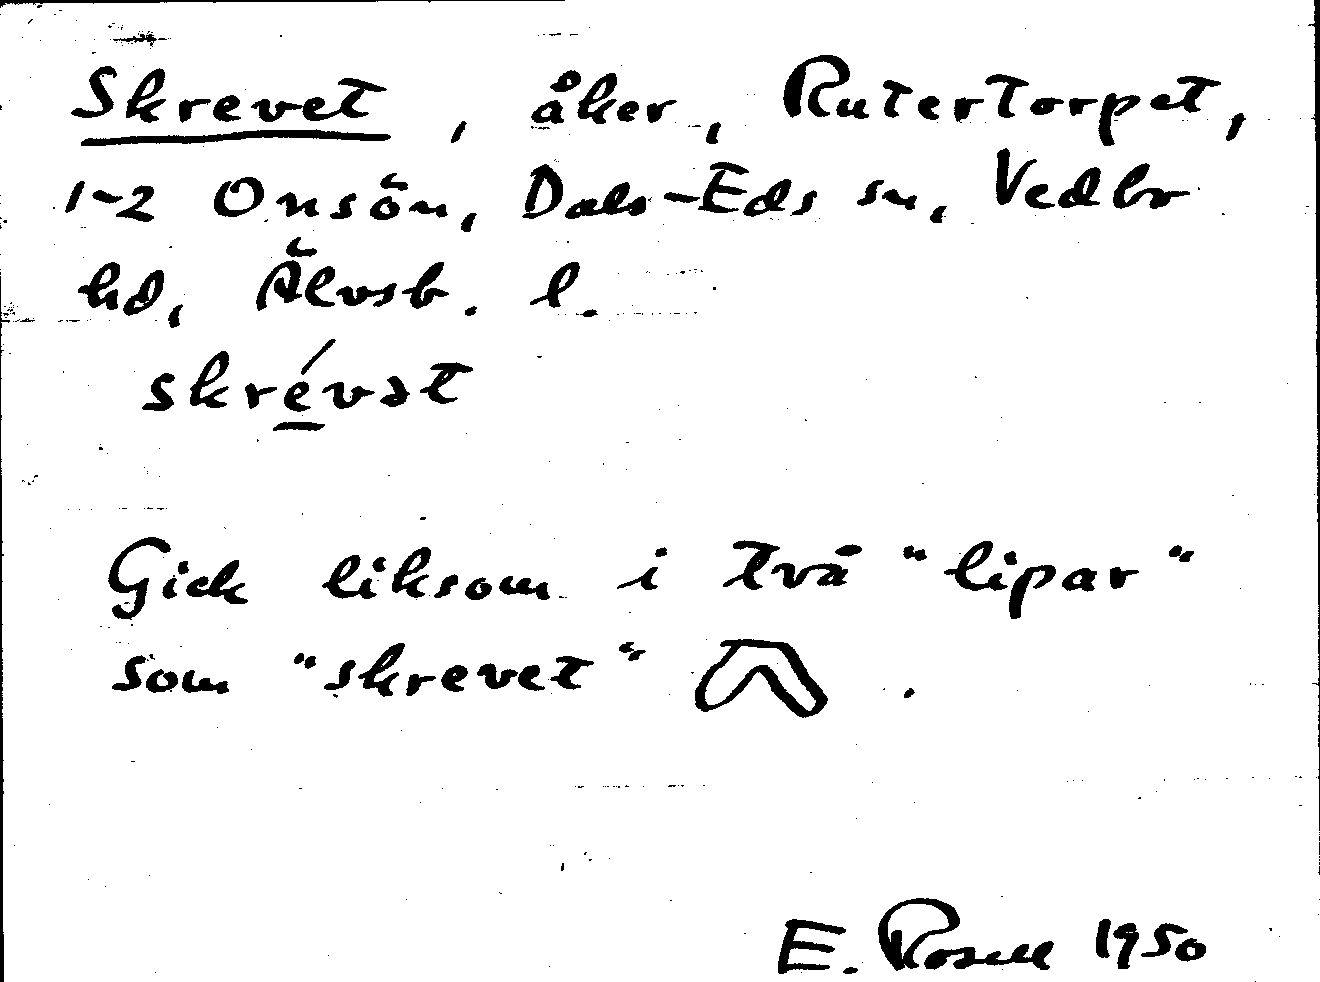 Skrevet, åker, Rutertorpet,
1-2 Onsön, Dals-Eds sn, Vedbo
hd, Älvsb. l.
skrévət
Gick liksom i två "lipar"
som "skrevet" .
E. Rosell 1950